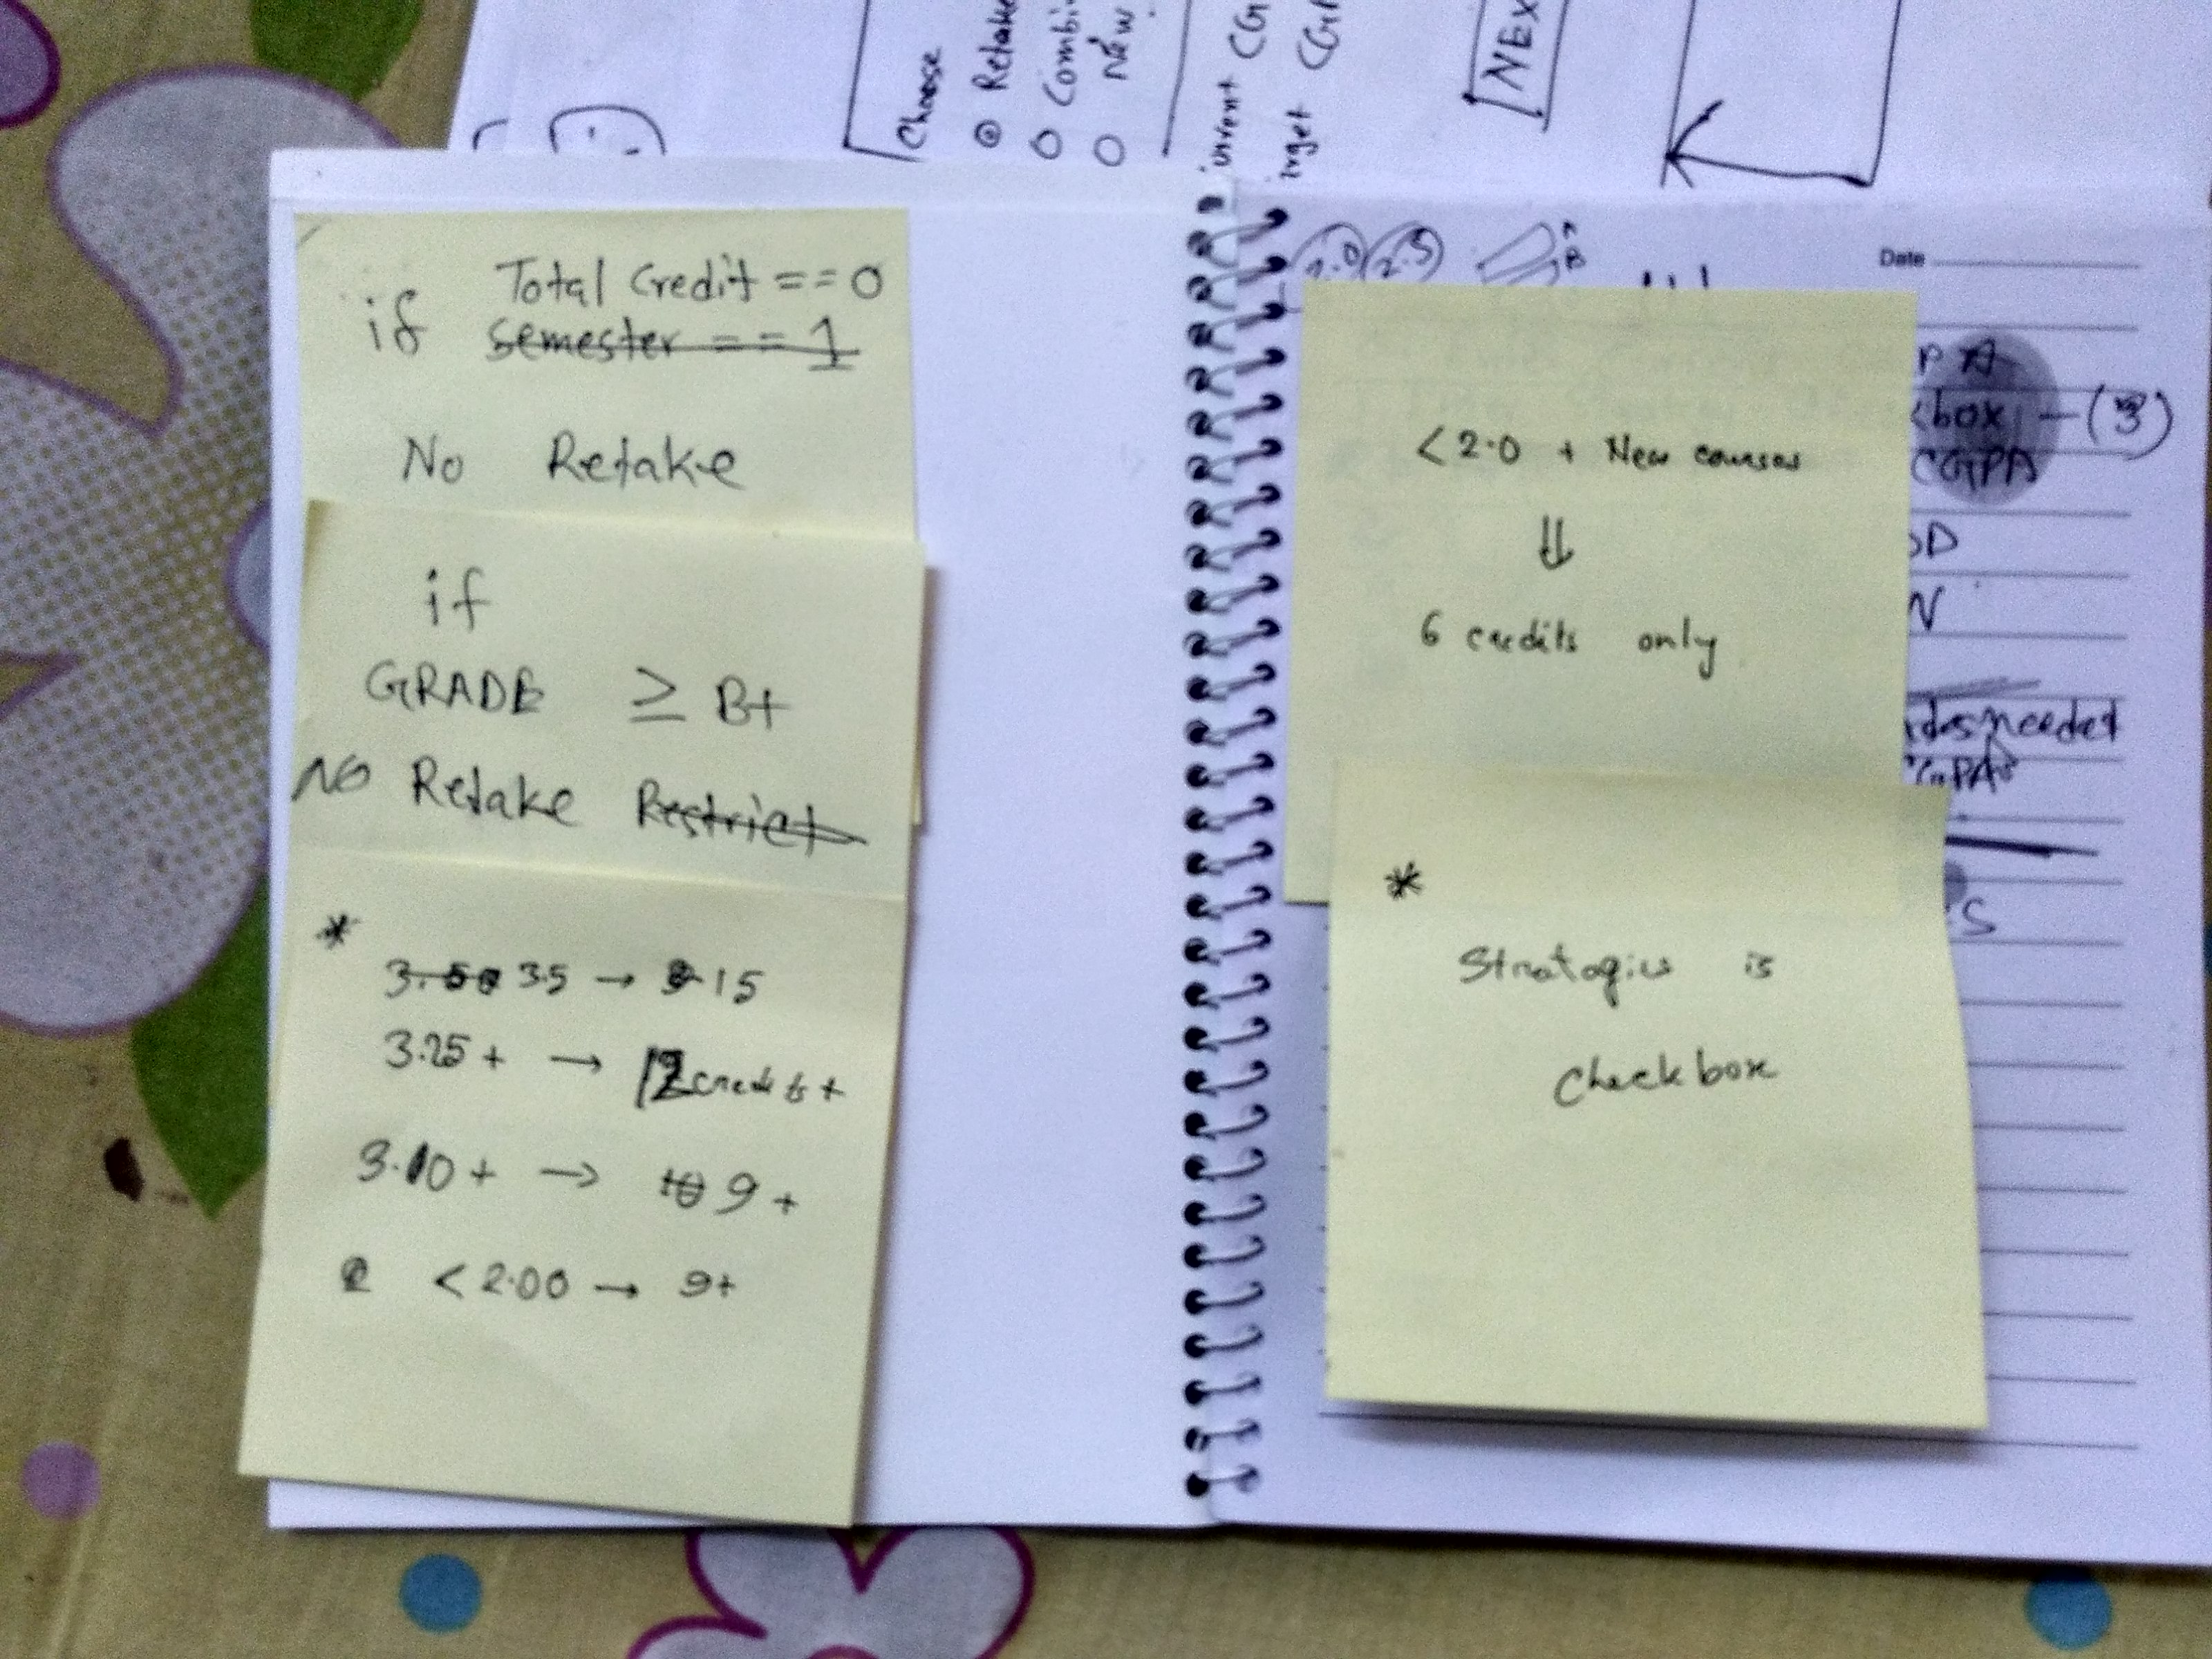 Choose
Retake
Combi
New
CG
CGP
NEX
Total Credit == 0
if semester == 1
No Retake
if
GRADE ≥ B+
NO Retake Restrict
*
3.50 3.5 → 15
3.25 + → 12 credits +
3.10 + → 10 9 +
< 2.00 → 9+
2.5
B
Date
< 2.0 + New courses
⇓
6 credits only
*
Stratagies is
Checkbox
PA
kbox - (3)
CGPA
D
N
needed
S